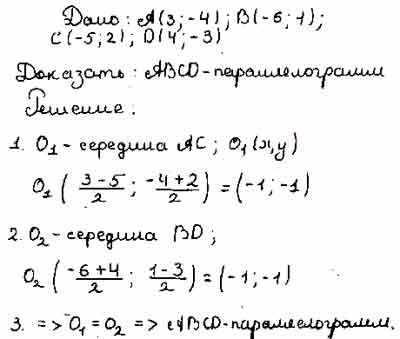 Дано: A(3; -4); B(-6; 1);
C(-5; 2); D(4; -3)
Доказать: ABCD-параллелограмм
Решение:
1. O₁ - середина AC; O₁(x,y)
O₁ ( (3-5)/2 ; (-4+2)/2 ) = (-1; -1)
2. O₂ - середина BD;
O₂ ( (-6+4)/2 ; (1-3)/2 ) = (-1; -1)
3. => O₁ = O₂ => ABCD-параллелограмм.